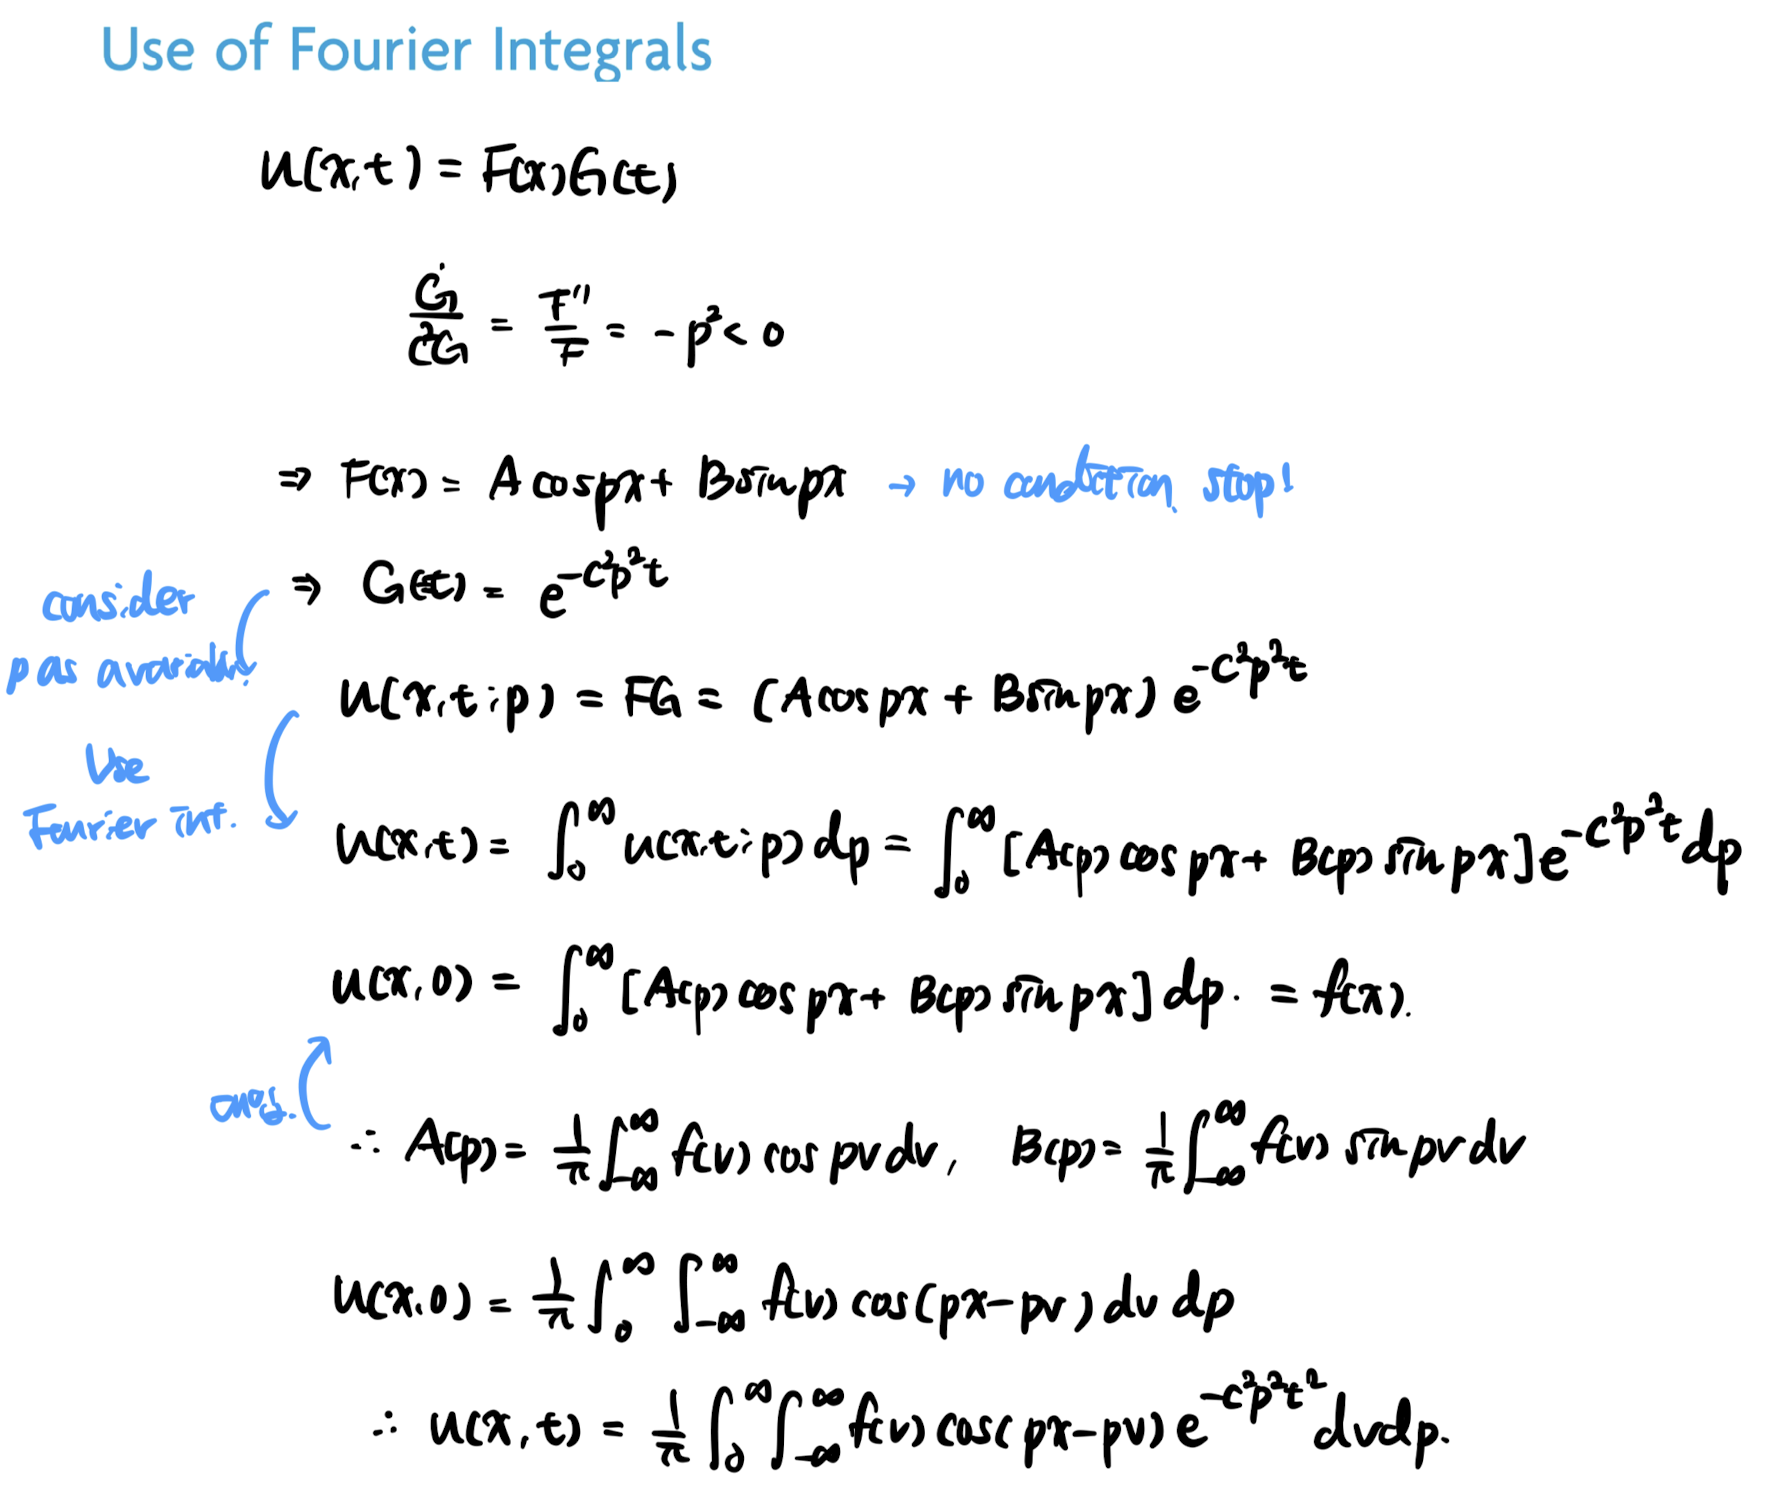 Use of Fourier Integrals
u(x,t) = F(x)G(t)
Ġ/c²G = F''/F = -p² < 0
⇒ F(x) = A cos px + B sin px → no condition, stop!
⇒ G(t) = e^{-c²p²t}
consider
p as a variable!
u(x,t;p) = FG = (A cos px + B sin px) e^{-c²p²t}
Use
Fourier int.
u(x,t) = ∫₀^∞ u(x,t;p) dp = ∫₀^∞ [A(p) cos px + B(p) sin px] e^{-c²p²t} dp
u(x,0) = ∫₀^∞ [A(p) cos px + B(p) sin px] dp. = f(x).
∴ A(p) = 1/π ∫_{-∞}^∞ f(v) cos pv dv, B(p) = 1/π ∫_{-∞}^∞ f(v) sin pv dv
u(x,0) = 1/π ∫₀^∞ ∫_{-∞}^∞ f(v) cos(px-pv) dv dp
∴ u(x,t) = 1/π ∫₀^∞ ∫_{-∞}^∞ f(v) cos(px-pv) e^{-c²p²t²} dv dp.